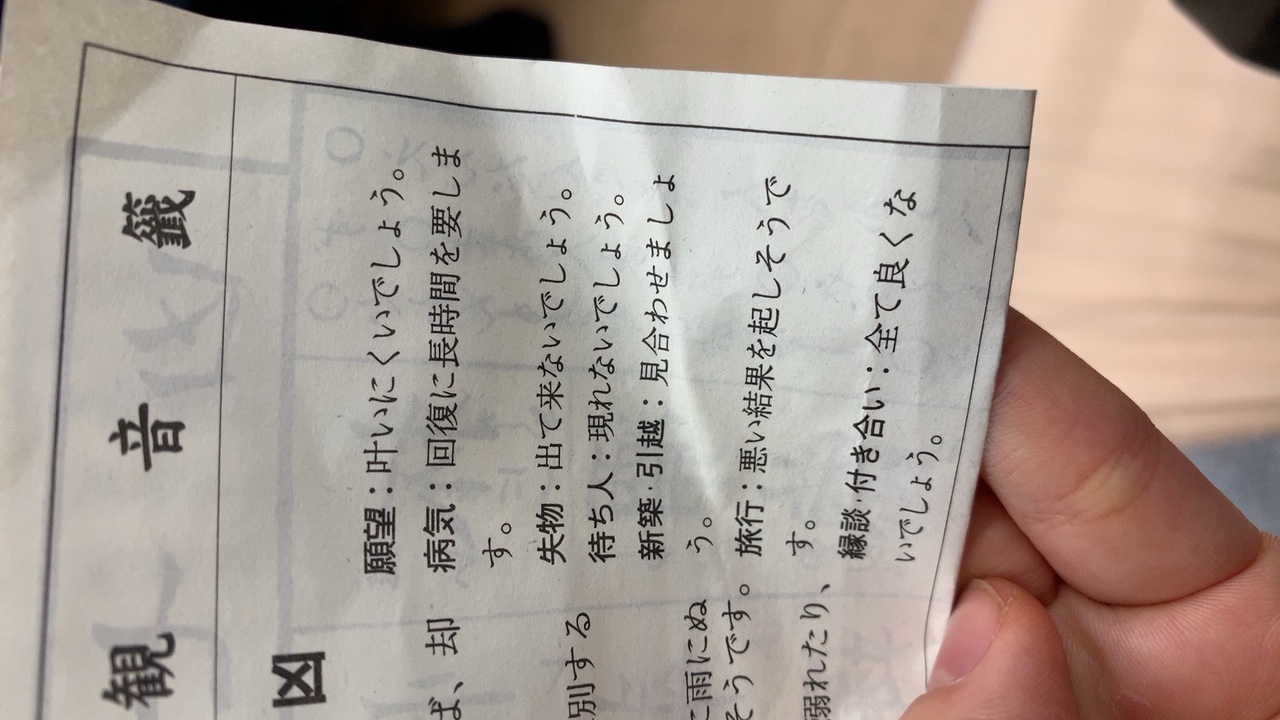 観音籤
凶
ば、却
別する
に雨にぬ
そうです。
溺れたり、
願望：叶いにくいでしょう。
病気：回復に長時間を要しま
す。
失物：出て来ないでしょう。
待ち人：現れないでしょう。
新築·引越：見合わせましょ
う。
旅行：悪い結果を起しそうで
す。
縁談·付き合い：全て良くな
いでしょう。